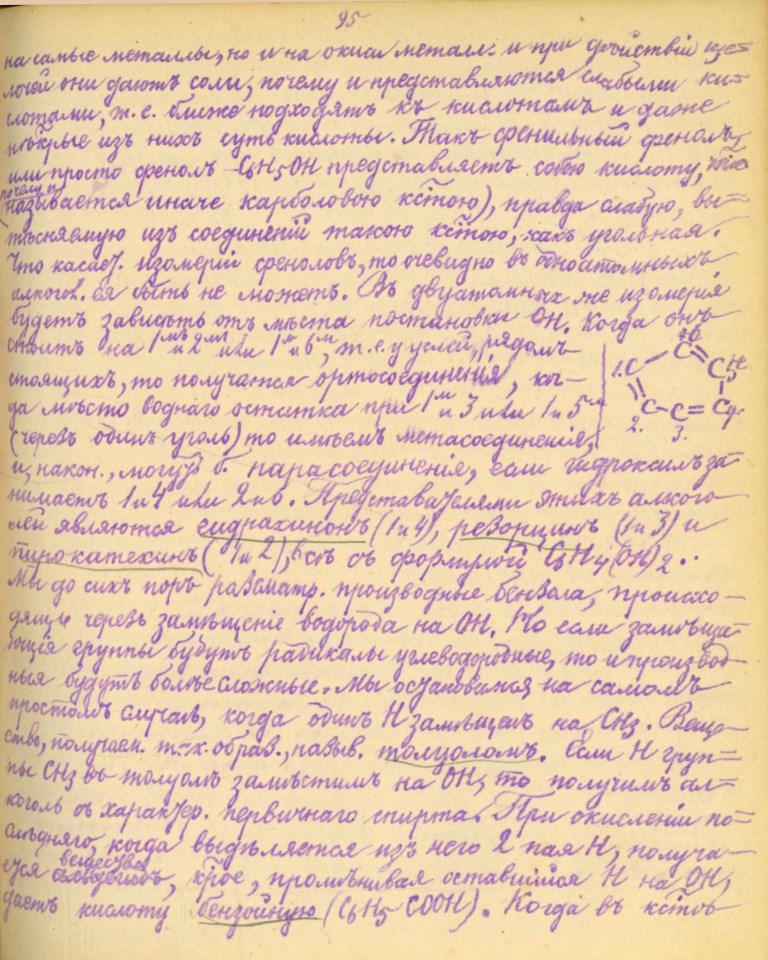 95
на самые металлы, но и на окиси металл. и при дѣйствіи щет-
лочей они даютъ соли, почему и представляются слабыми ки-
слотами, т. е. ближе подходятъ къ кислотамъ и даже
нѣкрые изъ нихъ суть кислоты. Такъ фенильный фенолъ
или просто фенолъ C6H5OH представляетъ собою кислоту,
почему и
(называется иначе карболовою кстою), правда слабую, вы-
тѣсняемую изъ соединеній такою кстою, какъ угольная.
Что касает. изомеріи феноловъ, то очевидно въ одноатомныхъ
алкогол. ея быть не можетъ. Въ двуатомныхъ же изомерія
будетъ зависѣть отъ мѣста постановки OH. Когда онъ
стоитъ на 1мъ и 2мъ или 1м и 6м, т. е. у углей, рядомъ
стоящихъ, то получается ортосоединенія, ког-
да мѣсто воднаго остатка при 1м и 3 или 1 и 5
(черезъ одинъ уголь) то имѣемъ метасоединенія,
и, након., могутъ б. парасоединенія, если гидроксилъ за-
нимаетъ 1 и 4 или 2 и 6. Представителями этихъ алкого-
лей являются гидрахинонъ (1 и 4), резорцинъ (1 и 3) и
пирокатехинъ (1 и 2), всѣ съ формулой C6H4(OH)2.
Мы до сихъ поръ разсматр. производные бензола, происхо-
дящіе черезъ замѣщеніе водорода на OH. Но если замѣща-
ющія группы будутъ радикалы углеводородные, то и производ-
ныя будутъ болѣе сложные. Мы остановимся на самомъ
простомъ случаѣ, когда одинъ H замѣщенъ на CH3. Веще-
ство, получаем. т-к. образ., назыв. толуоломъ. Если H груп-
пы CH3 въ толуолѣ замѣстимъ на OH, то получимъ ал-
коголь съ характер. первичнаго спирта. При окисленіи по-
слѣдняго, когда выдѣляется изъ него 2 пая H, получа-
вещество
ется, крое, промѣнивая оставшійся H на OH,
даетъ кислоту бензойную (C6H5COOH). Когда въ кстѣ
1. C
C
C
5
C
4
C
3.
C
2.